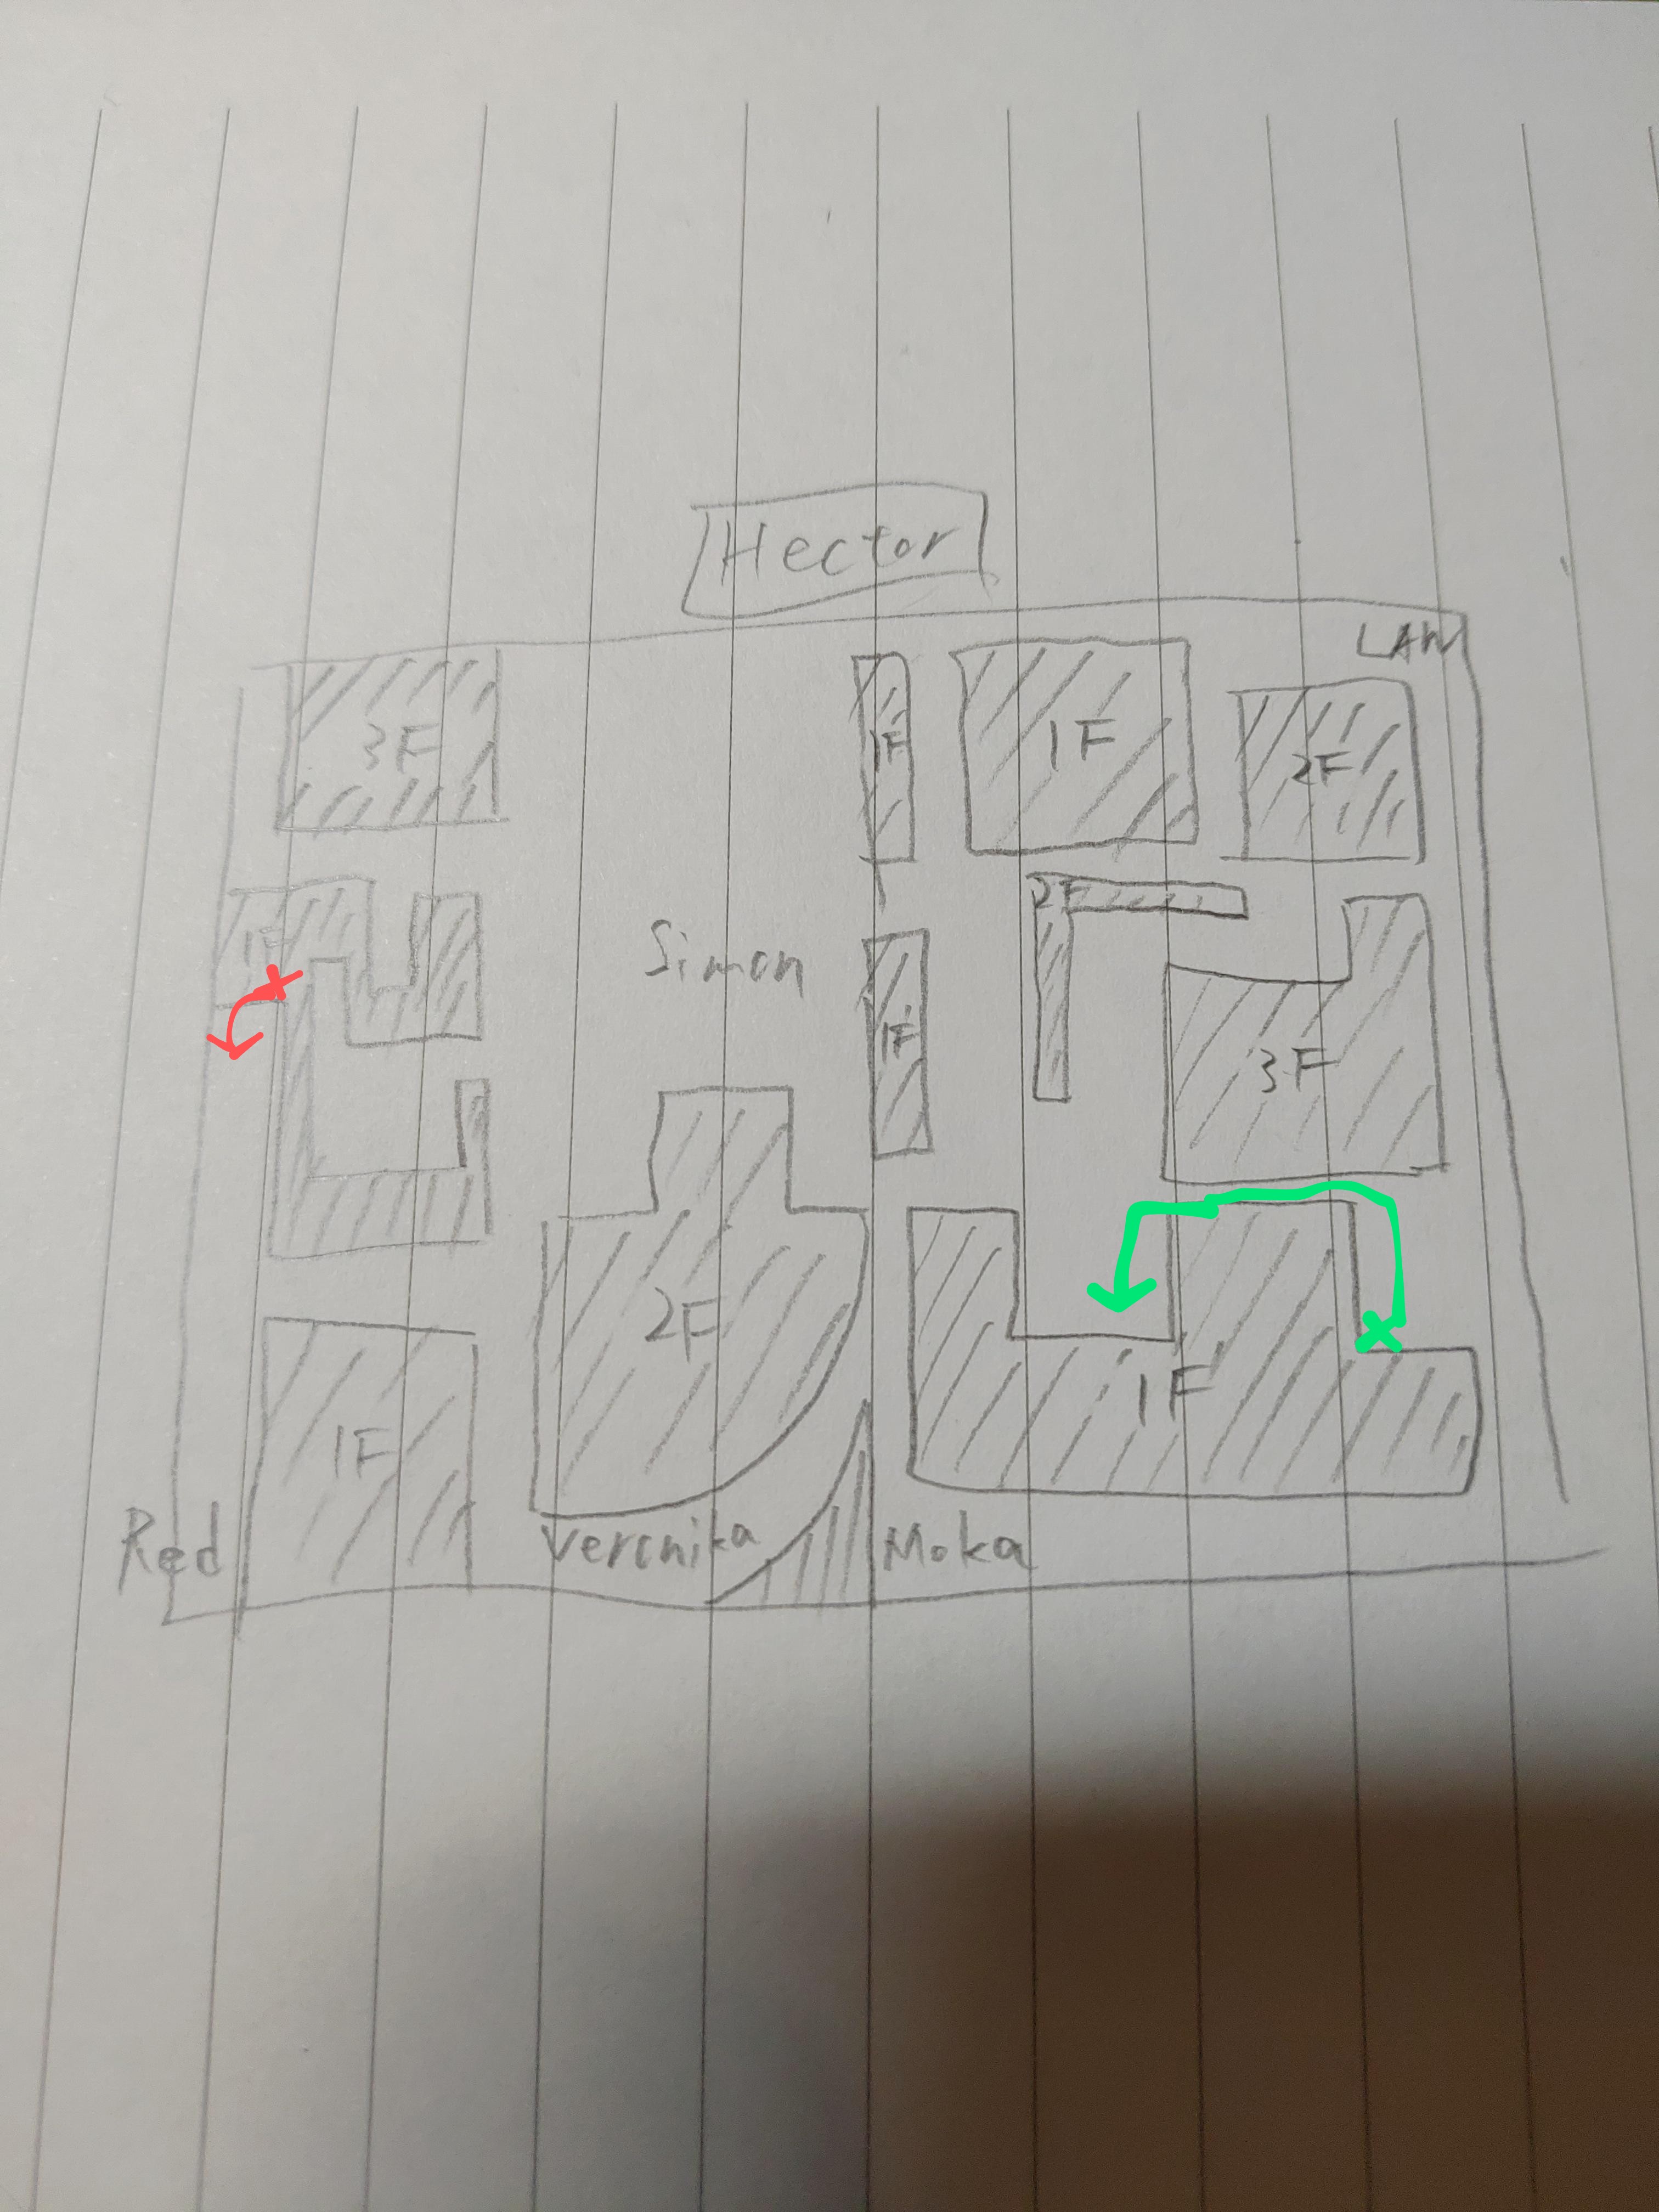 Hector
LAW
3F
1F
1F
2F
2F
1F
Simon
1F
3F
2F
1F
1F
Red
Veronika
Moka